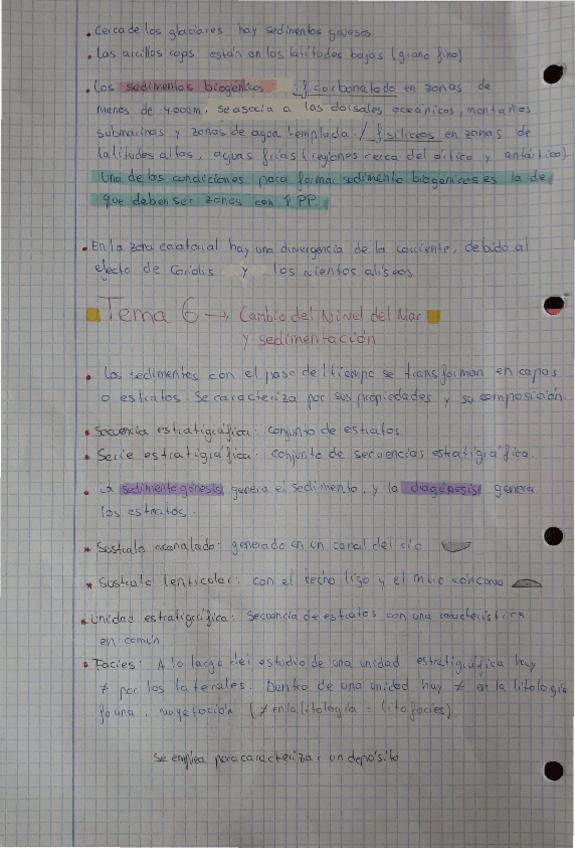 • Cerca de los glaciares hay sedimentos gruesos
• Las arcillas rojas están en las latitudes bajas (grano fino)
• Los sedimentos biogénicos f. carbonatado en zonas de
menos de 4.000m, se asocia a las dorsales oceánicas, montañas
submarinas y zonas de agua templada / f. silíceos en zonas de
latitudes altas, aguas frías (regiones cerca del ártico y antártico)
Una de las condiciones para formar sedimento biogénicos es la de
que deben ser zonas con ↑PP
• En la zona ecuatorial hay una divergencia de la corriente, debido al
efecto de Coriolis y los vientos alisios
Tema 6 → Cambio del Nivel del Mar
y sedimentación
• Los sedimentos con el paso del tiempo se transforman en capas
o estratos. Se caracteriza por sus propiedades y su composición.
• Secuencia estratigráfica: conjunto de estratos
• Serie estratigráfica: conjunto de secuencias estratigráfica.
• La sedimentogénesis genera el sedimento, y la diagénesis genera
los estratos.
• Sustrato acanalado: generado en un canal del río
• Sustrato lenticular: con el techo liso y el muro cóncavo
• Unidad estratigráfica: Secuencia de estratos con una característica
en común
• Facies: A lo largo del estudio de una unidad estratigráfica hay
≠ por los laterales. Dentro de una unidad hay ≠ en la litología
fauna, vegetación (≠ en la litología = litofacies).
Se emplea para caracterizar un depósito